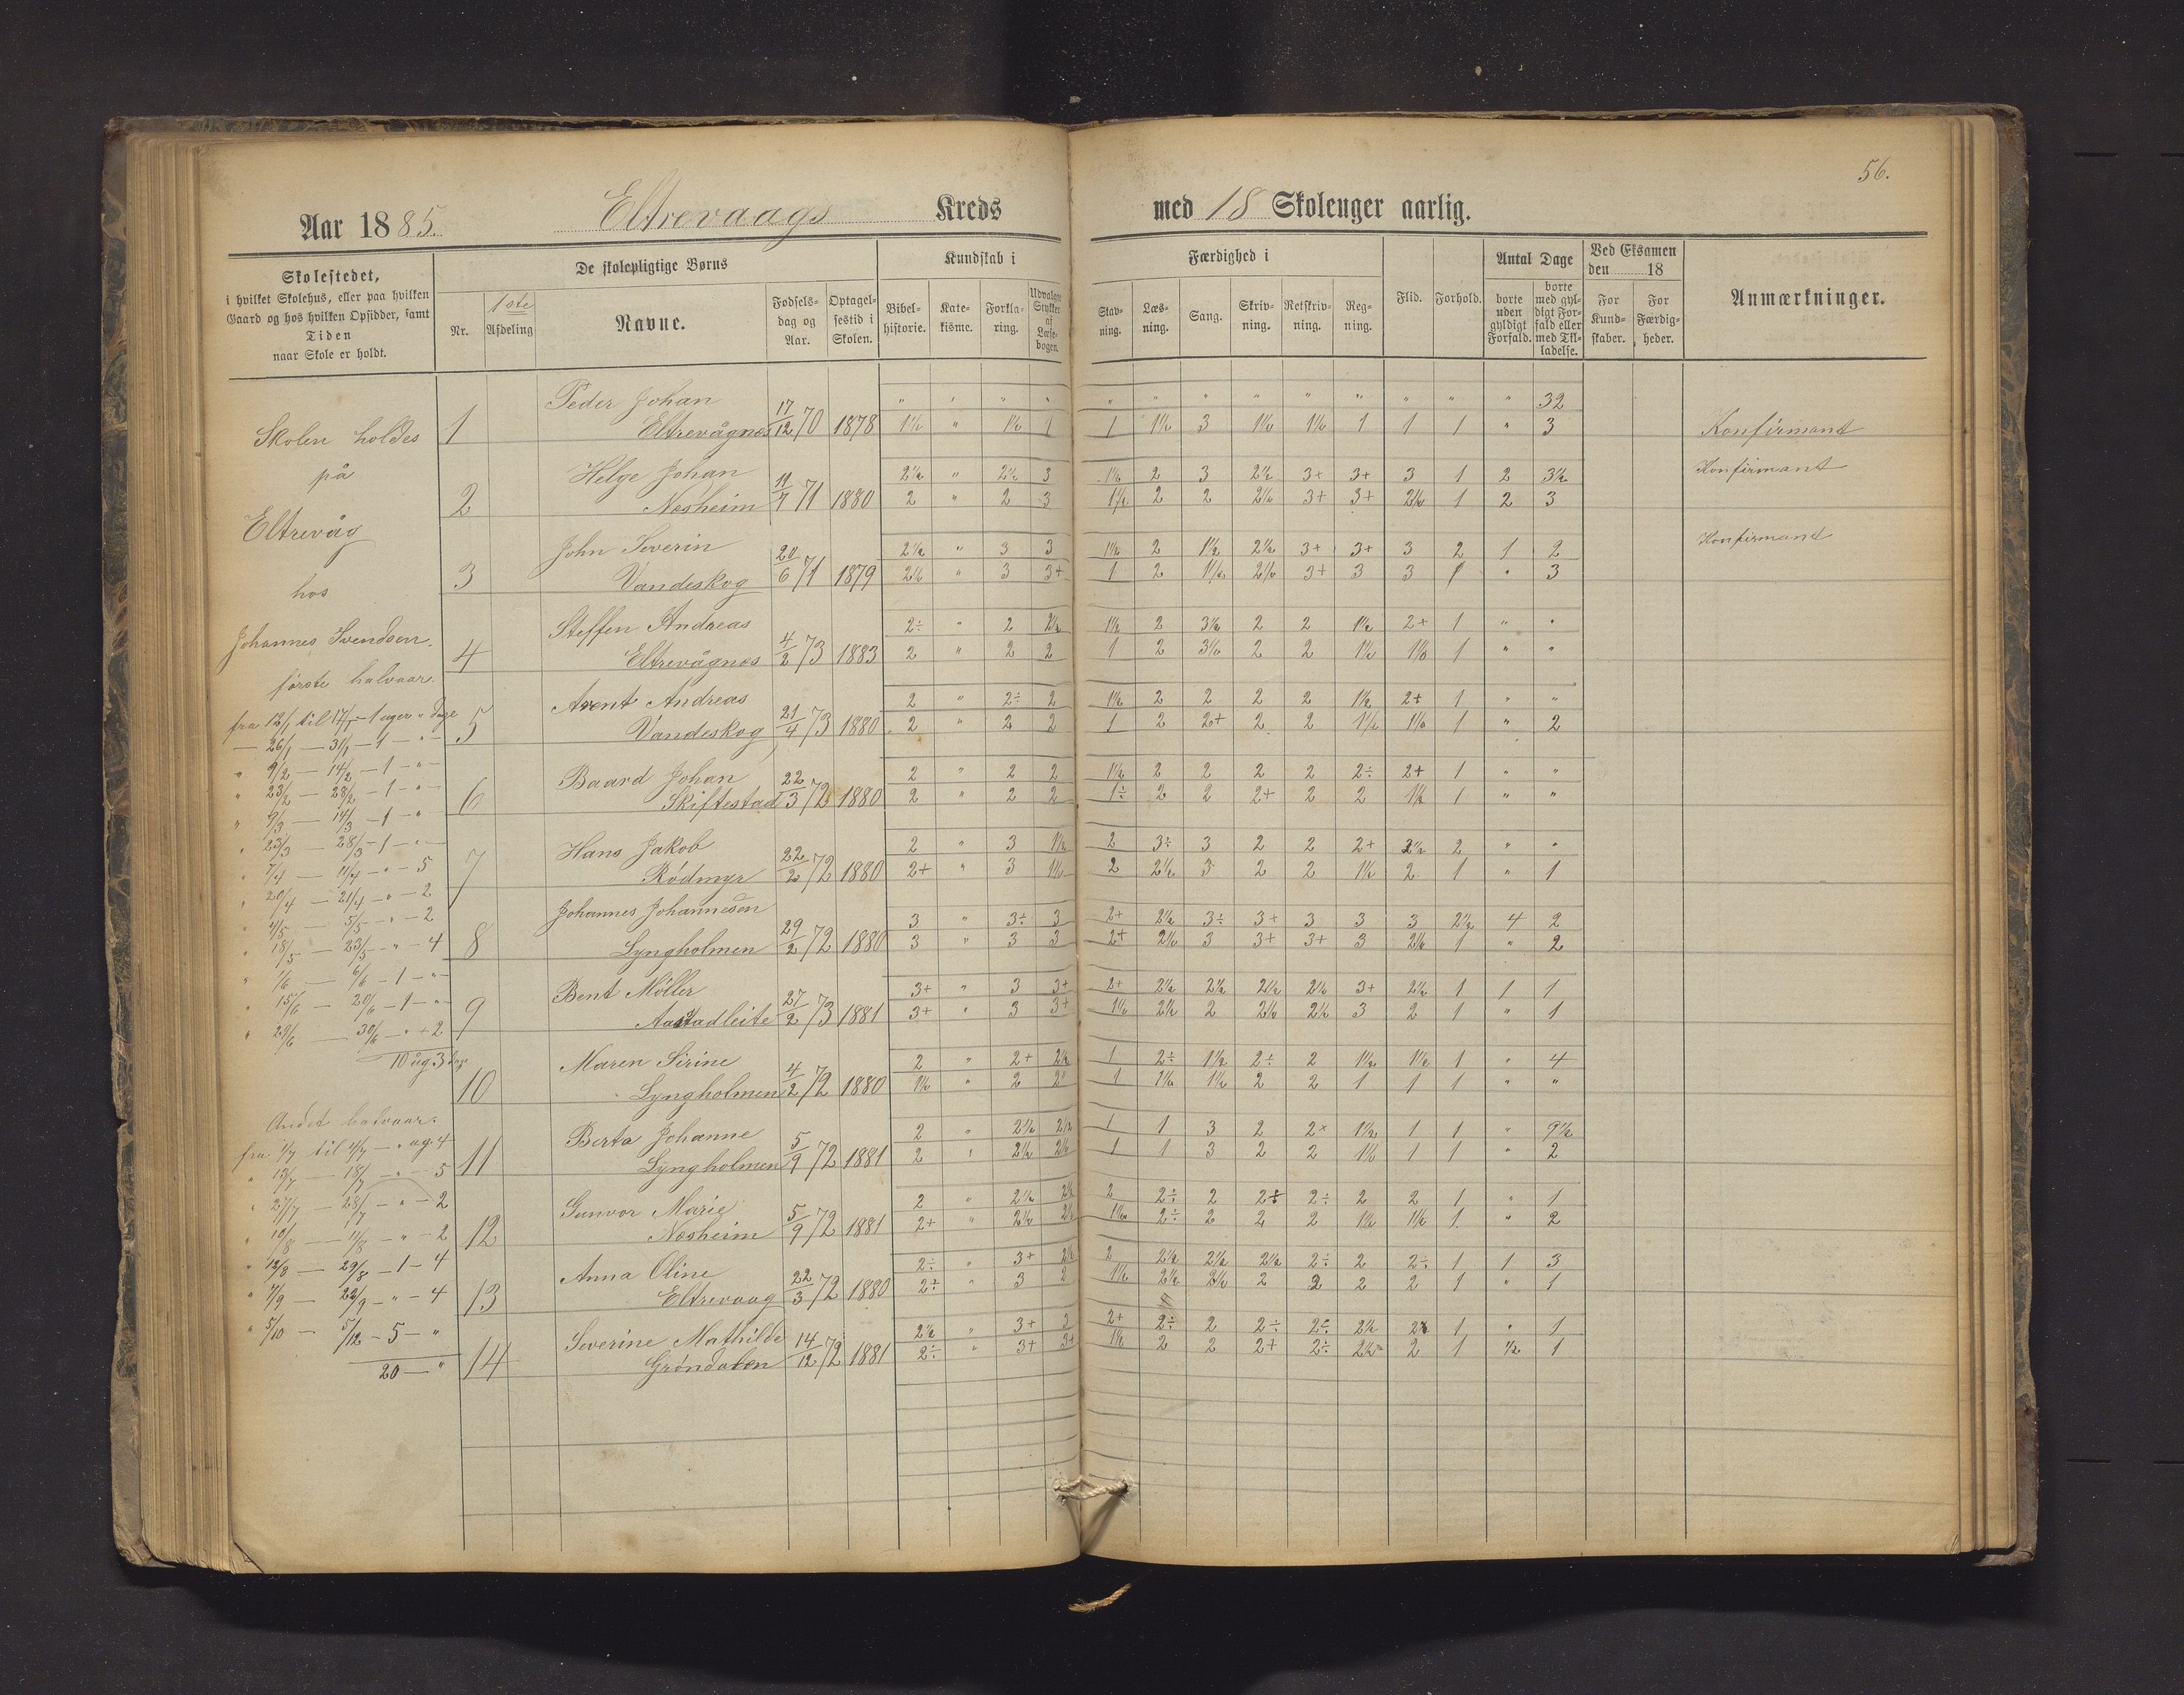 56.
Aar 1885. Eltrevaags Kreds med 18 Skoleuger aarlig.
Skolestedet,
i hvilket Skolehus, eller paa hvilken
Gaard og hos hvilken Opsidder, samt
Tiden
naar Skole er holdt.
De skolepligtige Børns
Nr.
1ste
Afdeling
Navne.
Fødsels-
dag og
Aar.
Optagel-
sestid i
Skolen.
Kundskab i
Bibel-
historie.
Kate-
kisme.
Forkla-
ring.
Udvalgte
Stykker
af
Læse-
bogen.
Færdighed i
Stav-
ning.
Læs-
ning.
Sang.
Skriv-
ning.
Retskriv-
ning.
Reg-
ning.
Flid.
Forhold.
Antal Dage
borte
uden
gyldigt
Forfald.
borte
med gyl-
digt For-
fald eller
med Til-
ladelse.
Ved Eksamen
den 18
For
Kund-
skaber.
For
Færdig-
heder.
Anmærkninger.
Skolen holdes
på
Eltrevåg
hos
Johannes Svendsen.
første halvaar.
fra 12/1 til 17/1 - 1 uger " dage
— 26/1 — 31/1 — 1 — " —
" 9/2 — 14/2 — 1 — " —
" 23/2 — 28/2 — 1 — " —
" 9/3 — 14/3 — 1 — "
" 23/3 — 28/3 — 1 — " —
" 7/4 — 11/4 — " — 5
" 20/4 — 21/4 — " — 2
" 4/5 — 5/5 — " — 2
" 18/5 — 23/5 — " — 4
" 1/6 — 6/6 — 1 — " —
" 15/6 — 20/6 — 1 — " —
" 29/6 — 30/6 — " + 2
10 ug. 3 dage
Andet halvaar.
fra 1/7 til 4/7 — " ug. 4
" 13/7 — 18/7 — " — 5
" 27/7 — 28/7 — " — 2
" 10/8 — 11/8 — " — 2
" 18/8 — 29/8 — 1 — 4
" 7/9 — 22/9 — " — 4
" 5/10 — 5/12 — 5 — "
20 — "
1 Peder Johan
Eltrevågnes 17/12 70 1878
" " " " " " " " " " " " " 32
1½ " 1½ 1 1 1½ 3 1½ 1½ 1 1 1 " 3 Konfirmant
2 Helge Johan
Nesheim 11/7 71 1880
2½ " 2½ 3 1½ 2 3 2½ 3+ 3+ 3 1 2 3½ Konfirmant
2 " 2 3 1½ 2 2 2½ 3+ 3+ 2½ 1 2 3
3 John Severin
Vandeskog 20/6 71 1879
2½ " 3 3 1½ 2 1½ 2½ 3+ 3+ 3 2 1 2 Konfirmant
2½ " 3 3+ 1 2 1½ 2½ 3+ 3 3 1 " 3
4 Steffen Andreas
Eltrevågnes 4/2 73 1883
2÷ " 2 2½ 1½ 2 3½ 2 2 1½ 2+ 1 " "
2 " 2 2 1 2 3½ 2 2 1½ 1½ 1 " "
5 Arent Andreas
Vandeskog 21/4 73 1880
2 " 2÷ 2 1½ 2 2 2 2 1½ 2+ 1 " "
2 " 2 2 1 2 2+ 2 2 1½ 1½ 1 " 2
6 Baard Johan
Skiftestad 22/3 72 1880
2 " 2 2 1½ 2 2 2 2 2÷ 2+ 1 " "
2 " 2 2 1÷ 2 2 2+ 2 2 1½ 1 " "
7 Hans Jakob
Rødmyr 22/2 72 1880
2 " 3 1½ 2 3÷ 3 2 2 2+ 2½ 2 " "
2+ " 3 1½ 2 2½ 3 2 2 1½ 2 1 " 1
8 Johannes Johannesen
Lyngholmen 29/2 72 1880
3 " 3÷ 3 2+ 2½ 3÷ 3+ 3 3 3 2½ 4 2
3 " 3 3 2+ 2½ 3 3+ 3+ 3 2½ 1 " 2
9 Bent Møller
Aastadleite 27/2 73 1881
3+ " 3 3+ 2+ 2½ 2½ 2½ 2½ 3+ 2½ 1 1 1
3+ " 3 3+ 1½ 2½ 2 2½ 2½ 3 2 1 " 1
10 Maren Sirine
Lyngholmen 4/2 72 1880
2 " 2+ 2½ 1 2÷ 1½ 2÷ 2 1½ 1½ 1 " 4
1½ " 2 2 1 1½ 1½ 2 2 1 1 1 " "
11 Berta Johanne
Lyngholmen 5/9 72 1881
2 " 2½ 2½ 1 1 3 2 2+ 1½ 1 1 " 9½
2 " 2½ 2½ 1 1 3 2 2 1½ 1 1 " 2
12 Gunvor Marie
Nesheim 5/9 72 1881
2 " 2½ 2½ 2 2÷ 2 2+ 2÷ 2 2 1 " 1
2+ " 2½ 2½ 1½ 2÷ 2 2 2 1½ 1½ 1 " 2
13 Anna Oline
Eltrevaag 22/3 72 1880
2÷ " 3+ 2½ 2 2½ 2½ 2½ 2÷ 2 2÷ 1 1 3
2÷ " 3 2 1½ 2½ 2½ 2 2 2 2 1 " 1
14 Severine Mathilde
Grøndalen 14/12 72 1881
2½ " 3+ 2 2+ 2÷ 2 2÷ 2÷ 2½ 2 1 " 1
2÷ " 3+ 3+ 1½ 2 2 2+ 2÷ 2½ 2 1 ½ 1